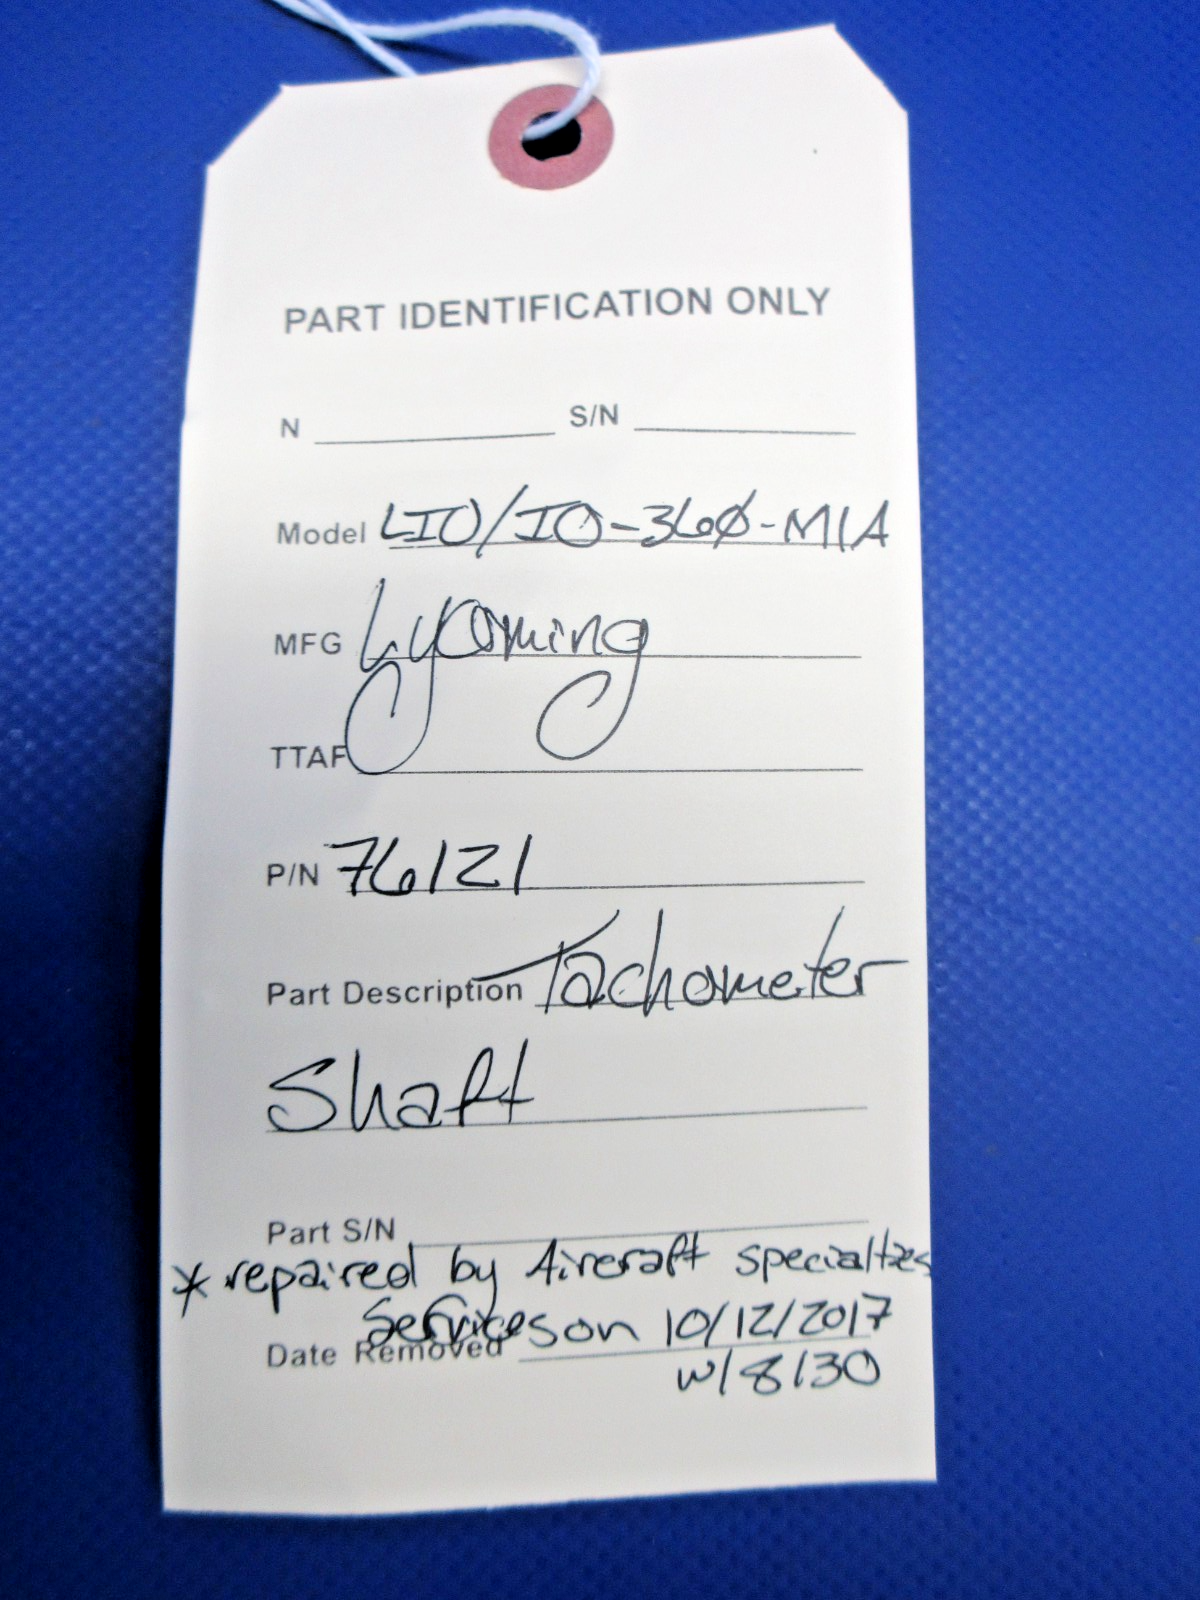 PART IDENTIFICATION ONLY
N S/N
Model LIO/IO-360-M1A
MFG Lycoming
TTAF
P/N 76121
Part Description Tachometer
Shaft
Part S/N
* repaired by Aircraft specialties
Services on 10/12/2017
Date Removed
w/8130